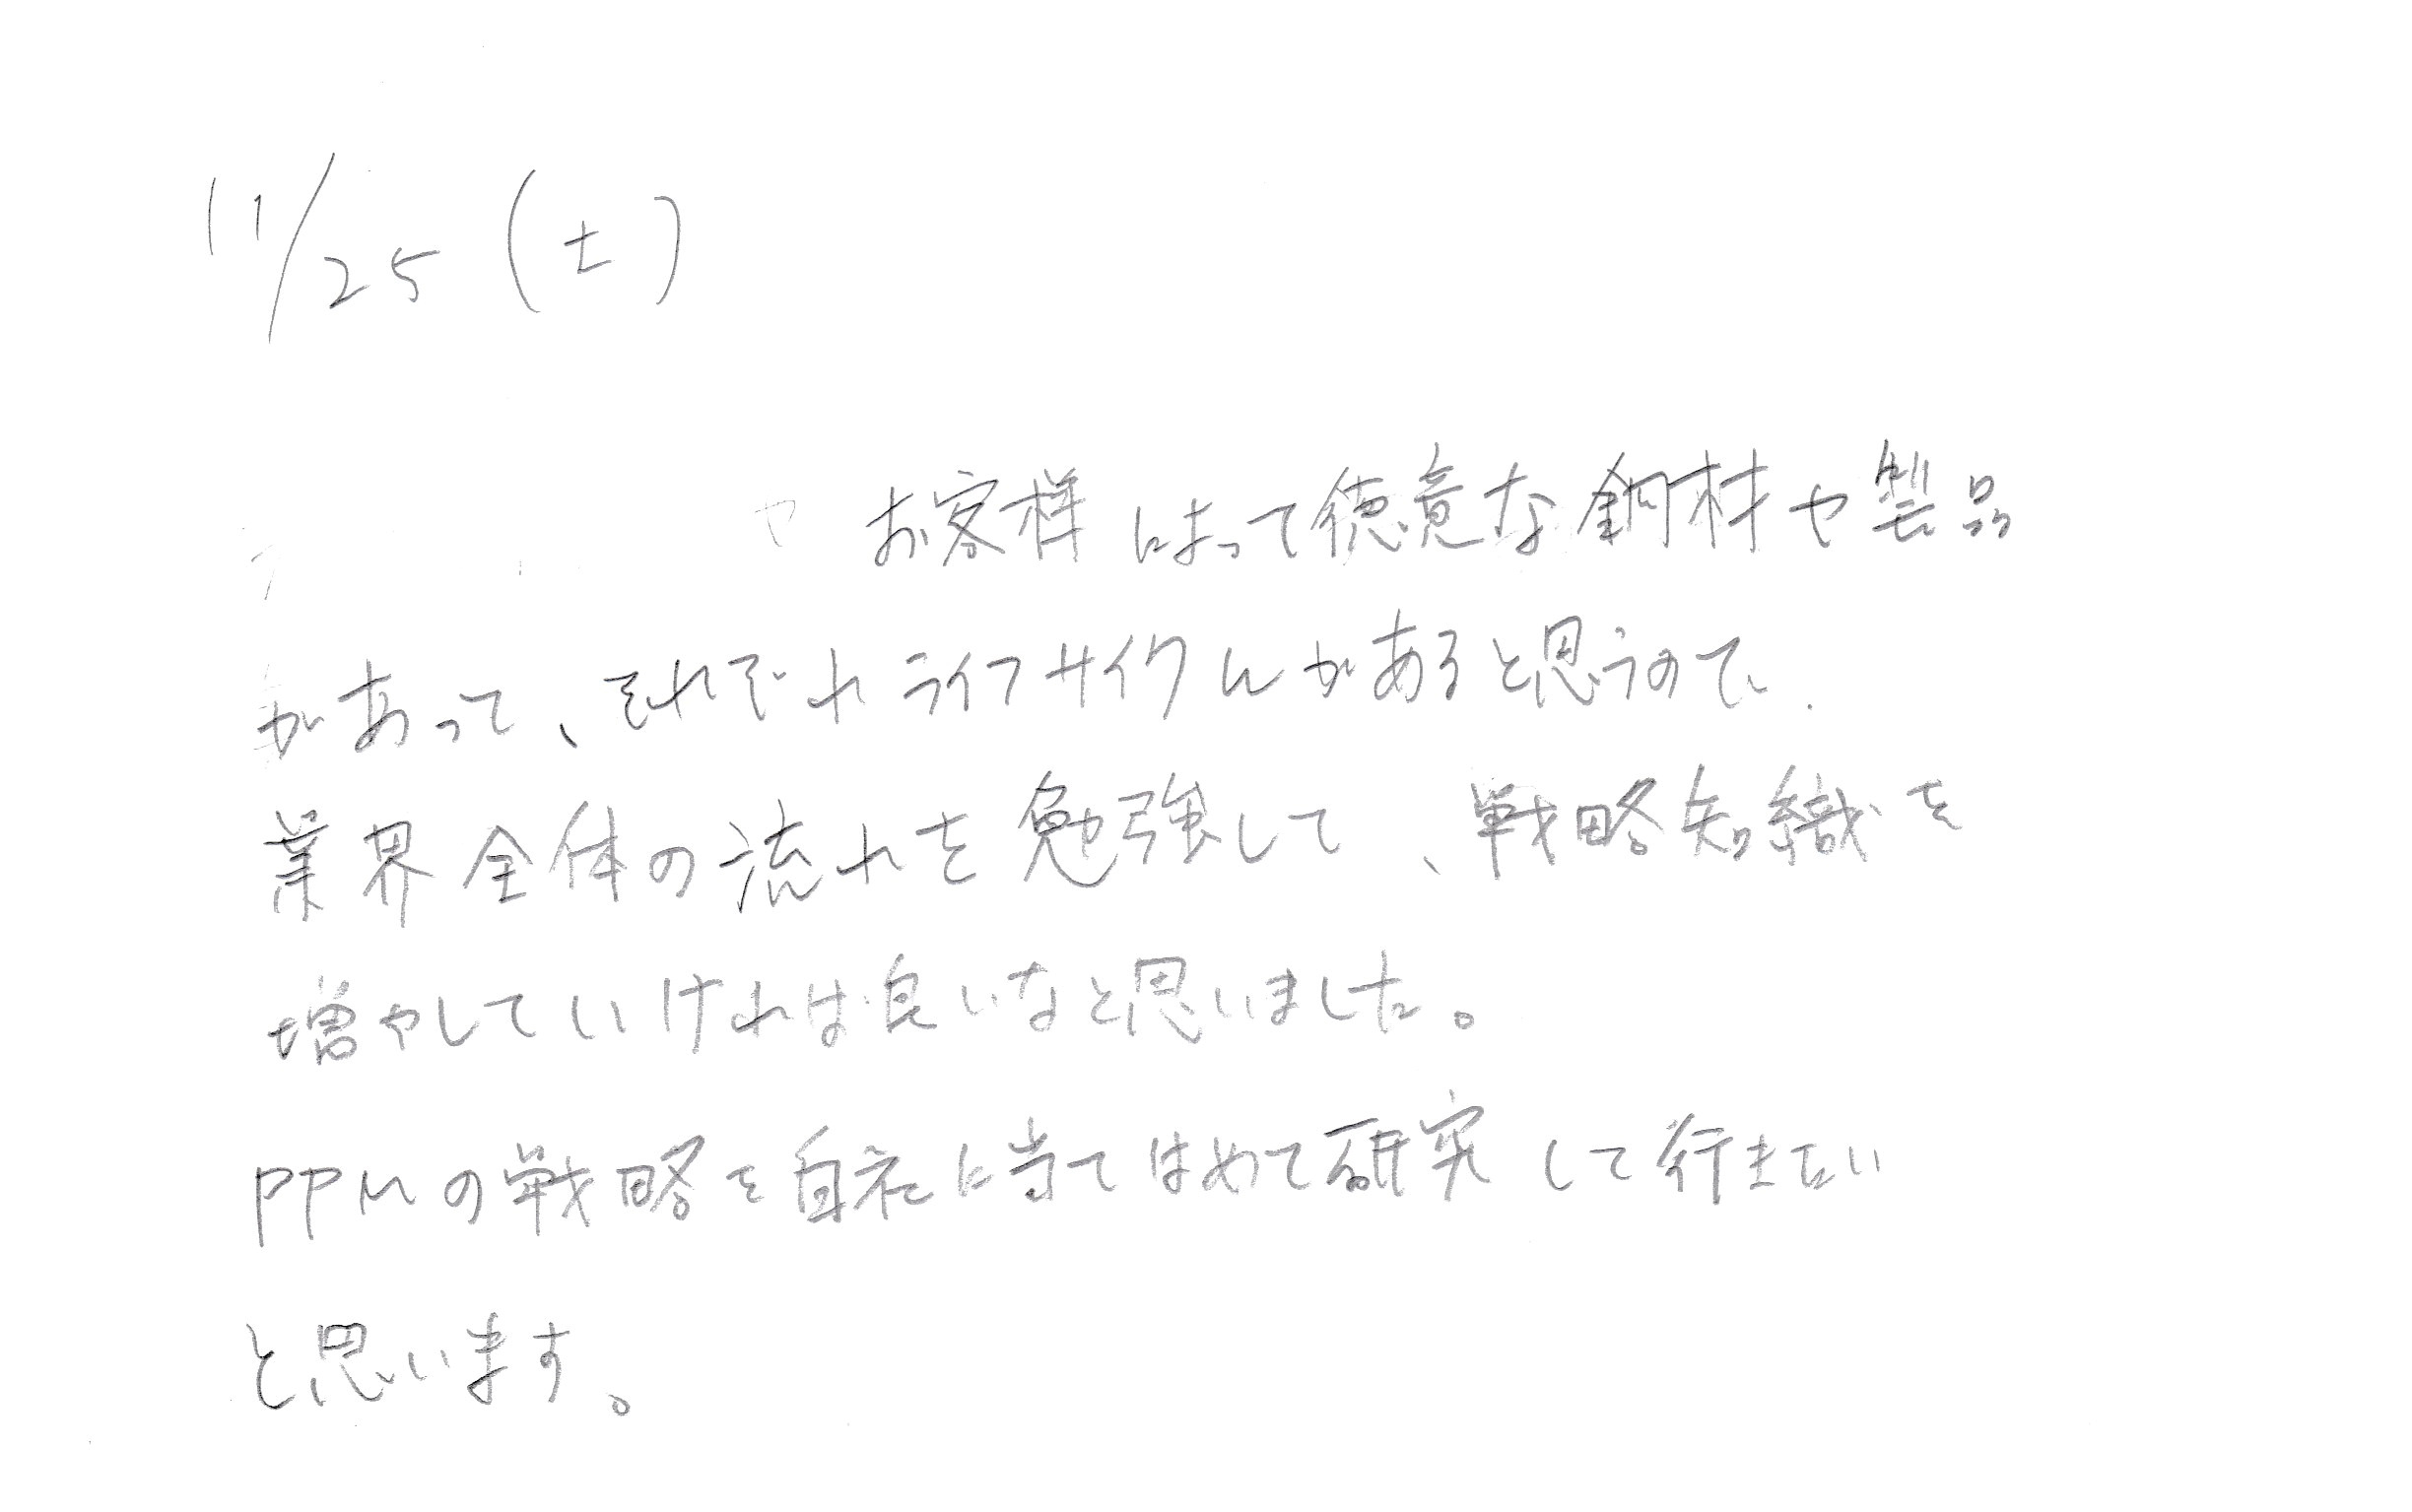 11/25 (土)
お客様によって徳意な鋼材や製品
があって、それぞれライフサイクルがあると思うので、
業界全体の流れを勉強して、戦略知織を
増やしていければ良いなと思いました。
PPMの戦略を自社に当てはめて研究して行きたい
と思います。